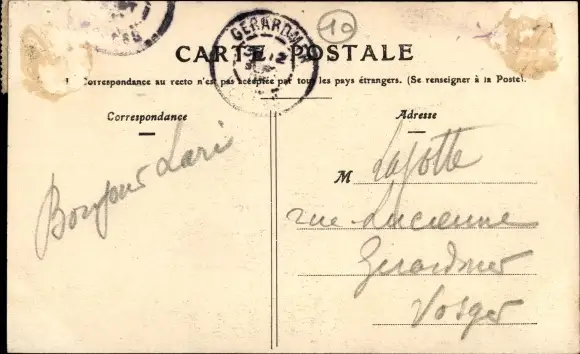 10
GERARDMER
CARTE POSTALE
Correspondance au recto n'est pas acceptée par tous les pays étrangers. (Se renseigner à la Poste).
Correspondance
Adresse
Bonjour
M Lajotte
rue Lucienne
Gerardmer
Vosges